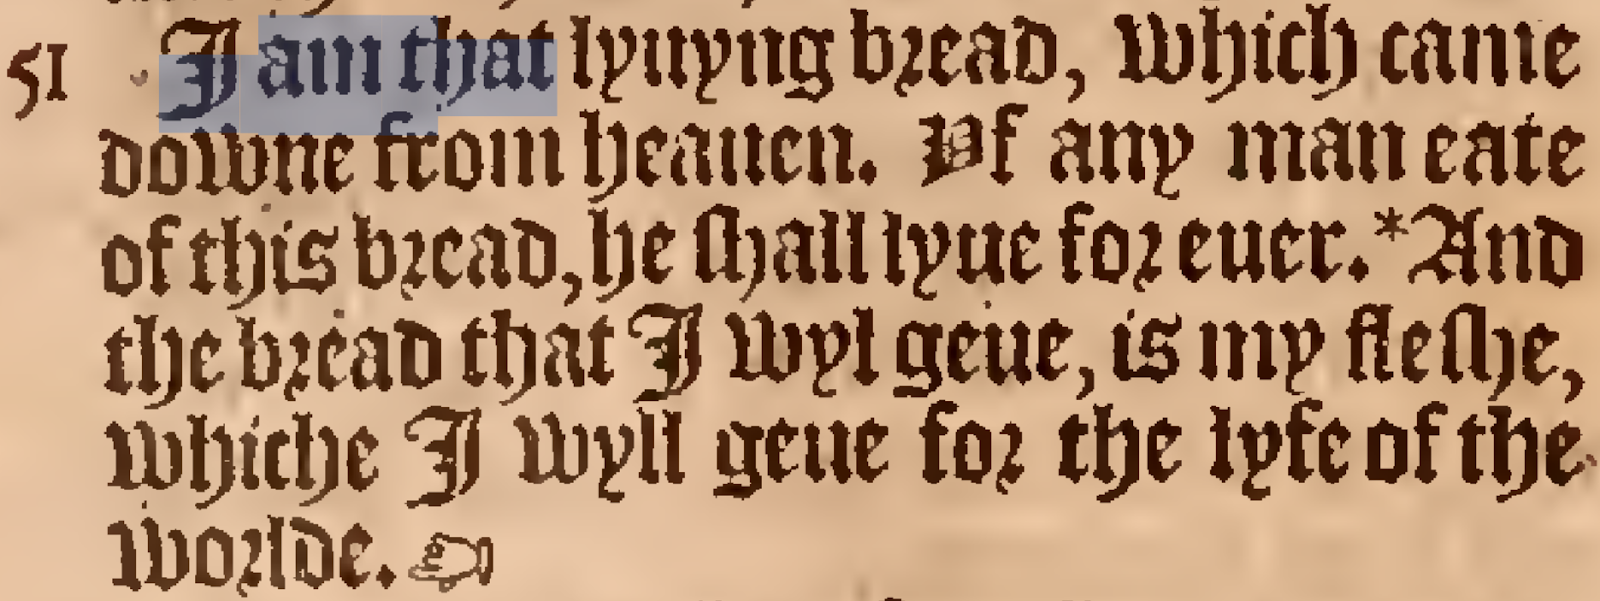 51 I am that lyuyng bread, which came
downe from heauen. Yf any man eate
of this bread, he shall lyue for euer. *And
the bread that I wyl geue, is my fleshe,
whiche I wyll geue for the lyfe of the
worlde. ☜